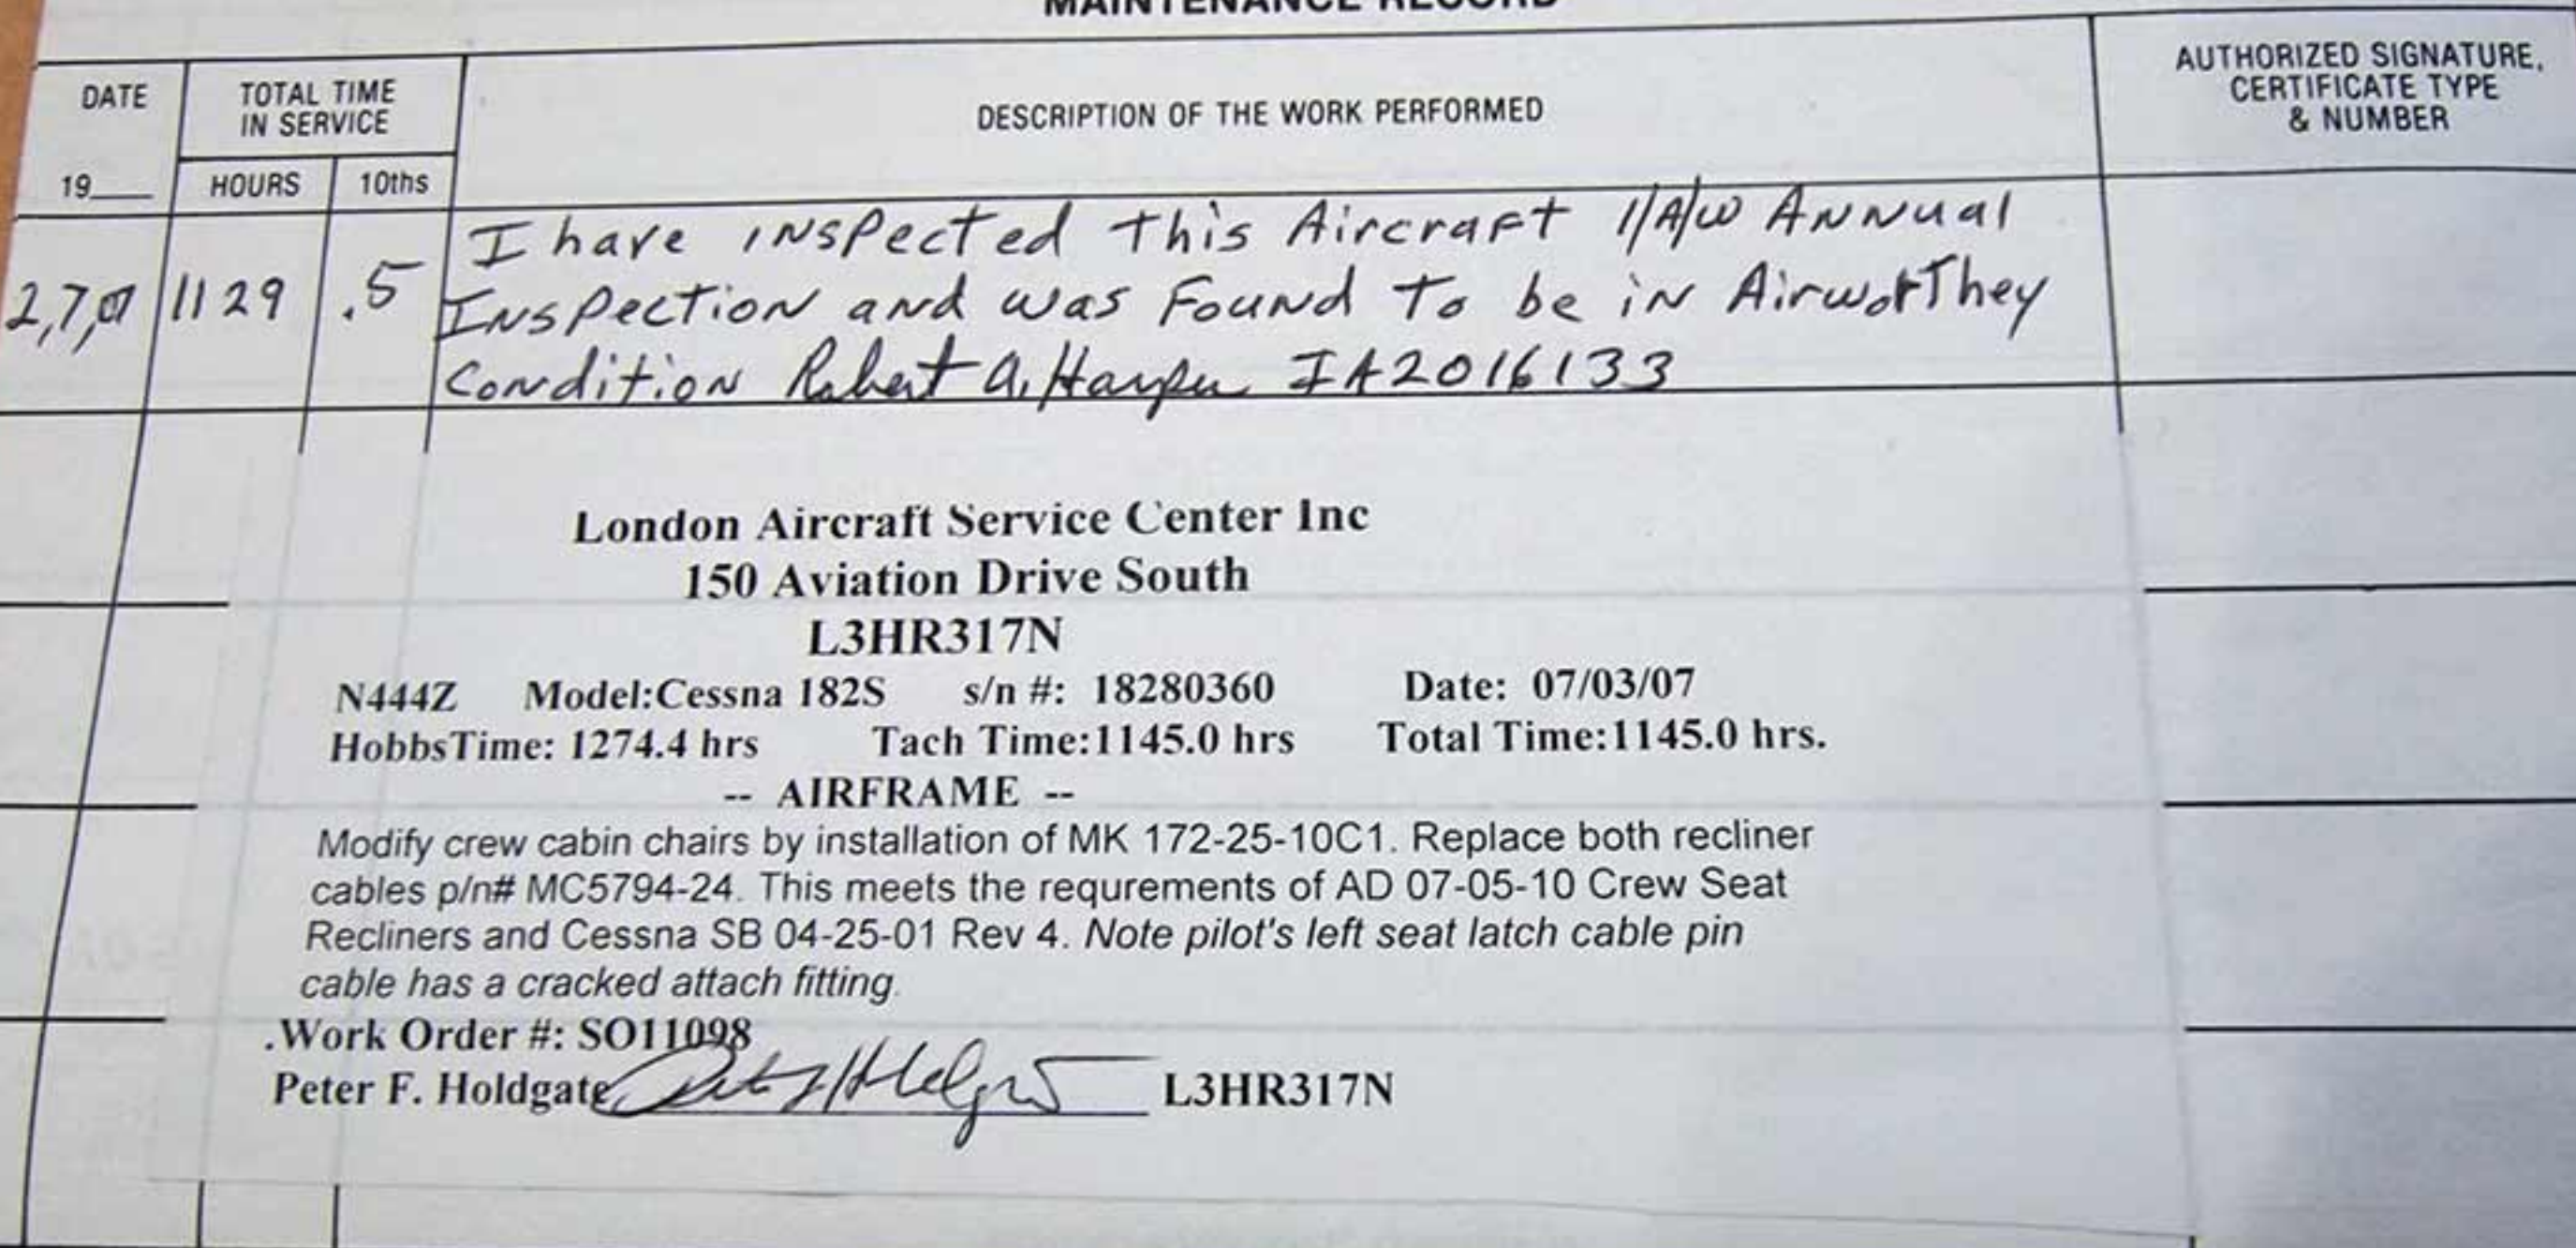 MAINTENANCE RECORD
DATE
19___
TOTAL TIME
IN SERVICE
HOURS 10ths
DESCRIPTION OF THE WORK PERFORMED
AUTHORIZED SIGNATURE,
CERTIFICATE TYPE
& NUMBER
2,7,07 1129 .5
I have inspected this Aircraft I/A/W Annual
Inspection and was Found To be in AirworThey
Condition Robert A. Harper IA2016133
London Aircraft Service Center Inc
150 Aviation Drive South
L3HR317N
N444Z Model:Cessna 182S s/n #: 18280360 Date: 07/03/07
HobbsTime: 1274.4 hrs Tach Time:1145.0 hrs Total Time:1145.0 hrs.
-- AIRFRAME --
Modify crew cabin chairs by installation of MK 172-25-10C1. Replace both recliner
cables p/n# MC5794-24. This meets the requrements of AD 07-05-10 Crew Seat
Recliners and Cessna SB 04-25-01 Rev 4. Note pilot's left seat latch cable pin
cable has a cracked attach fitting.
.Work Order #: SO11098
Peter F. Holdgate L3HR317N